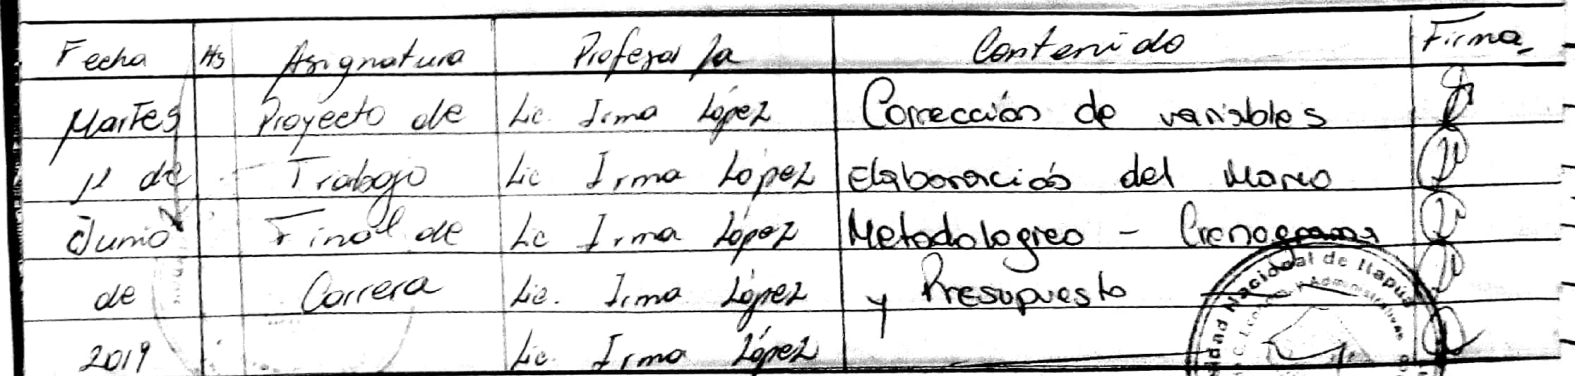 Fecha Hs Asignatura Profesor/a Contenido Firma
Martes Proyecto de Lic. Irma López Corrección de variables
11 de Trabajo Lic Irma López Elaboración del Marco
Junio Final de Lic Irma López Metodologico - Cronograma
de Carrera Lic. Irma López y Presupuesto
2019 Lic. Irma López
Nacional de Itapúa